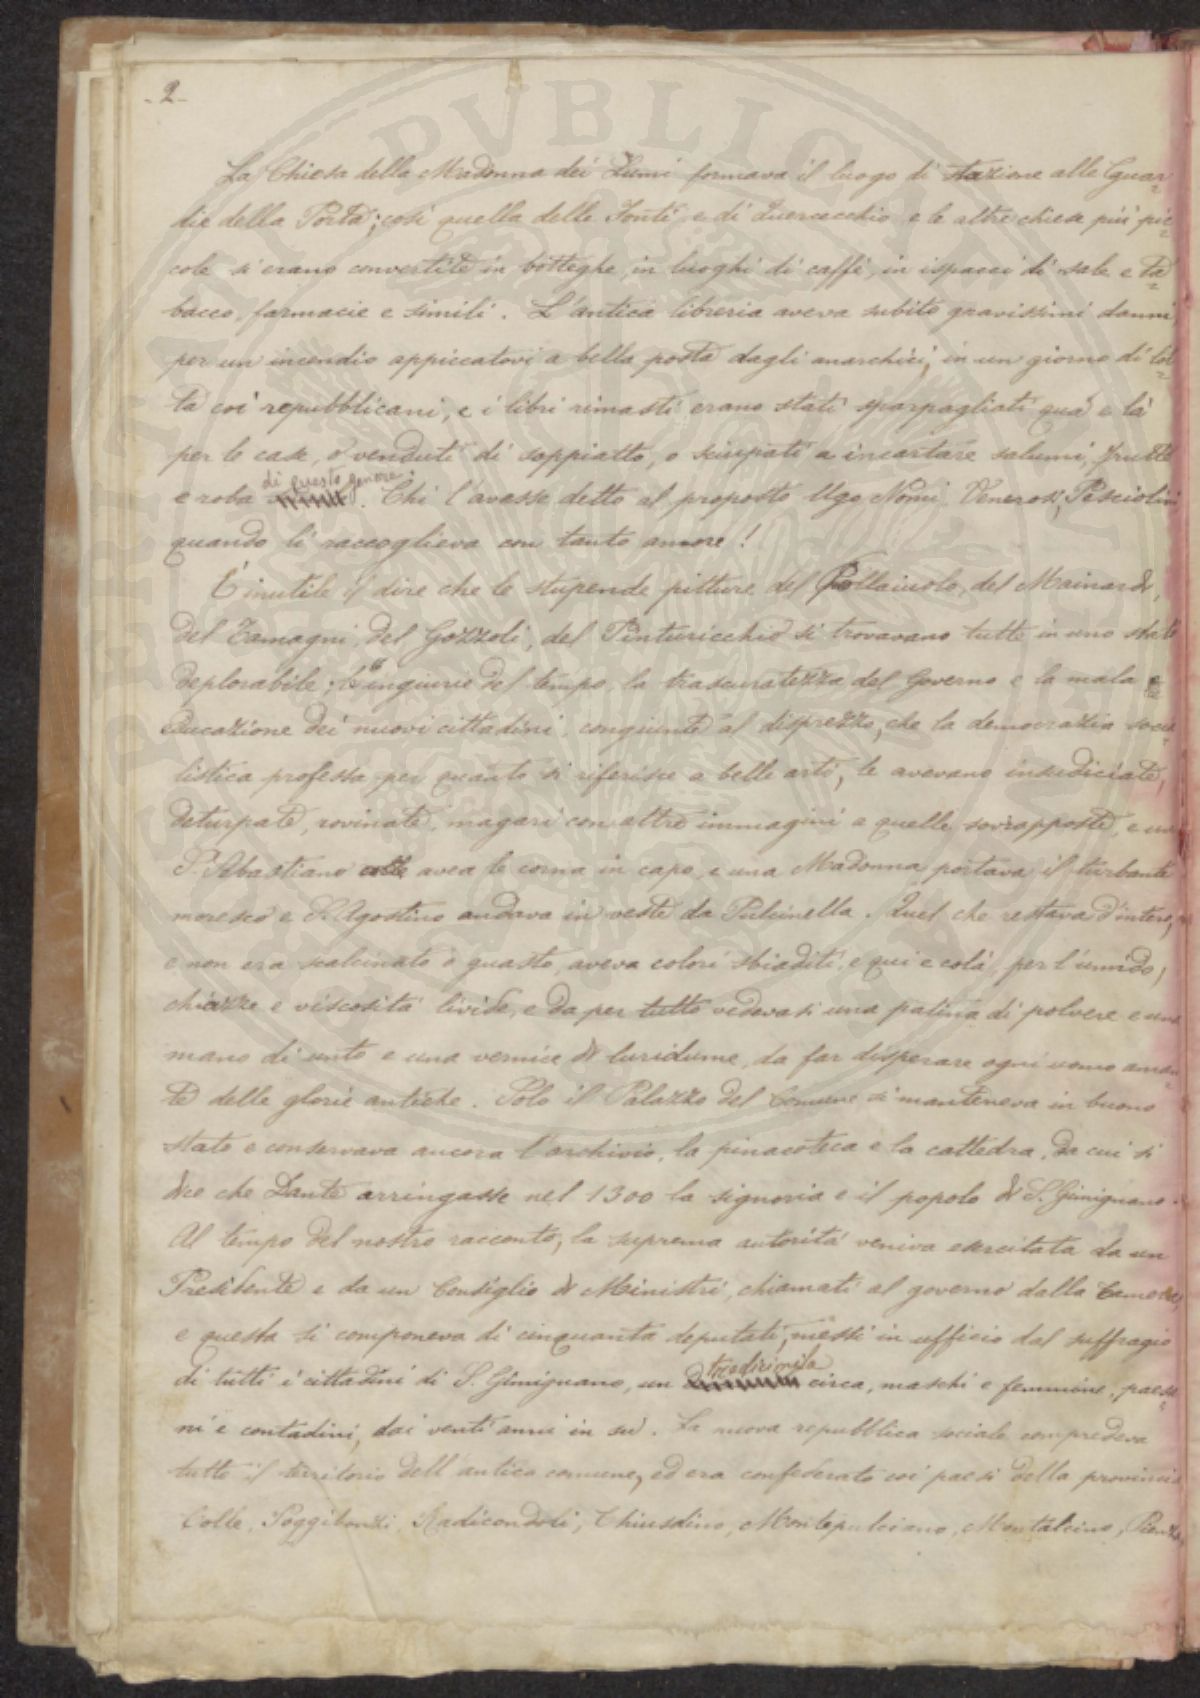 - 2 -
La Chiesa della Madonna dei Lumi formava il luogo di stazione alle Guar=
die della Porta; così quella delle Fonti e di Quercecchio e le altre chiese più pic=
cole si erano convertite in botteghe, in luoghi di caffè, in ispacci di sale e ta=
bacco, farmacie e simili. L'antica libreria aveva subito gravissimi danni,
per un incendio appiccatovi a bella posta dagli anarchici, in un giorno di lot=
ta coi repubblicani, e i libri rimasti erano stati sparpagliati qua e là
per le case, o venduti di soppiatto, o sciupati a incartare salumi, frutte
e roba di questo genere. Chi l'avesse detto al proposto Ugo Nomi Venerosi Pesciolini
quando li raccoglieva con tanto amore!
È inutile il dire che le stupende pitture del Pollaiuolo, del Mainardi,
del Tamagni, del Gozzoli, del Pinturicchio si trovavano tutte in uno stato
deplorabile; le ingiurie del tempo, la trascuratezza del Governo e la mala e=
ducazione dei nuovi cittadini, congiunte al disprezzo, che la democrazia socia=
listica professa per quanto si riferisce a belle arti, le avevano insudiciate,
deturpate, rovinate, magari con altre immagini a quelle sovrapposte, e un
S. Sebastiano avea le corna in capo, e una Madonna portava il turbante
moresco e S. Agostino andava in veste da Pulcinella. Quel che restava d'intero,
e non era scalcinato o guasto, aveva colori sbiaditi, e qui e colà, per l'umido,
chiazze e viscosità livide, e da per tutto vedevasi una patina di polvere e una
mano di unto e una vernice di luridume, da far disperare ogni uomo aman=
te delle glorie antiche. Solo il Palazzo del Comune si manteneva in buono
stato e conservava ancora l'archivio, la pinacoteca e la cattedra, da cui si
dice che Dante arringasse nel 1300 la signoria e il popolo di S. Gimignano.
Al tempo del nostro racconto, la suprema autorità veniva esercitata da un
Presidente e da un Consiglio di Ministri, chiamati al governo dalla Camera,
e questa si componeva di cinquanta deputati, messi in ufficio dal suffragio
di tutti i cittadini di S. Gimignano, un tredicimila circa, maschi e femmine, paesa=
ni e contadini, dai venti anni in su. La nuova repubblica sociale compredeva
tutto il territorio dell'antico comune, ed era confederato coi paesi della provincia
Colle, Poggibonsi, Radicondoli, Chiusdino, Montepulciano, Montalcino, Pienza,
PVBLICI